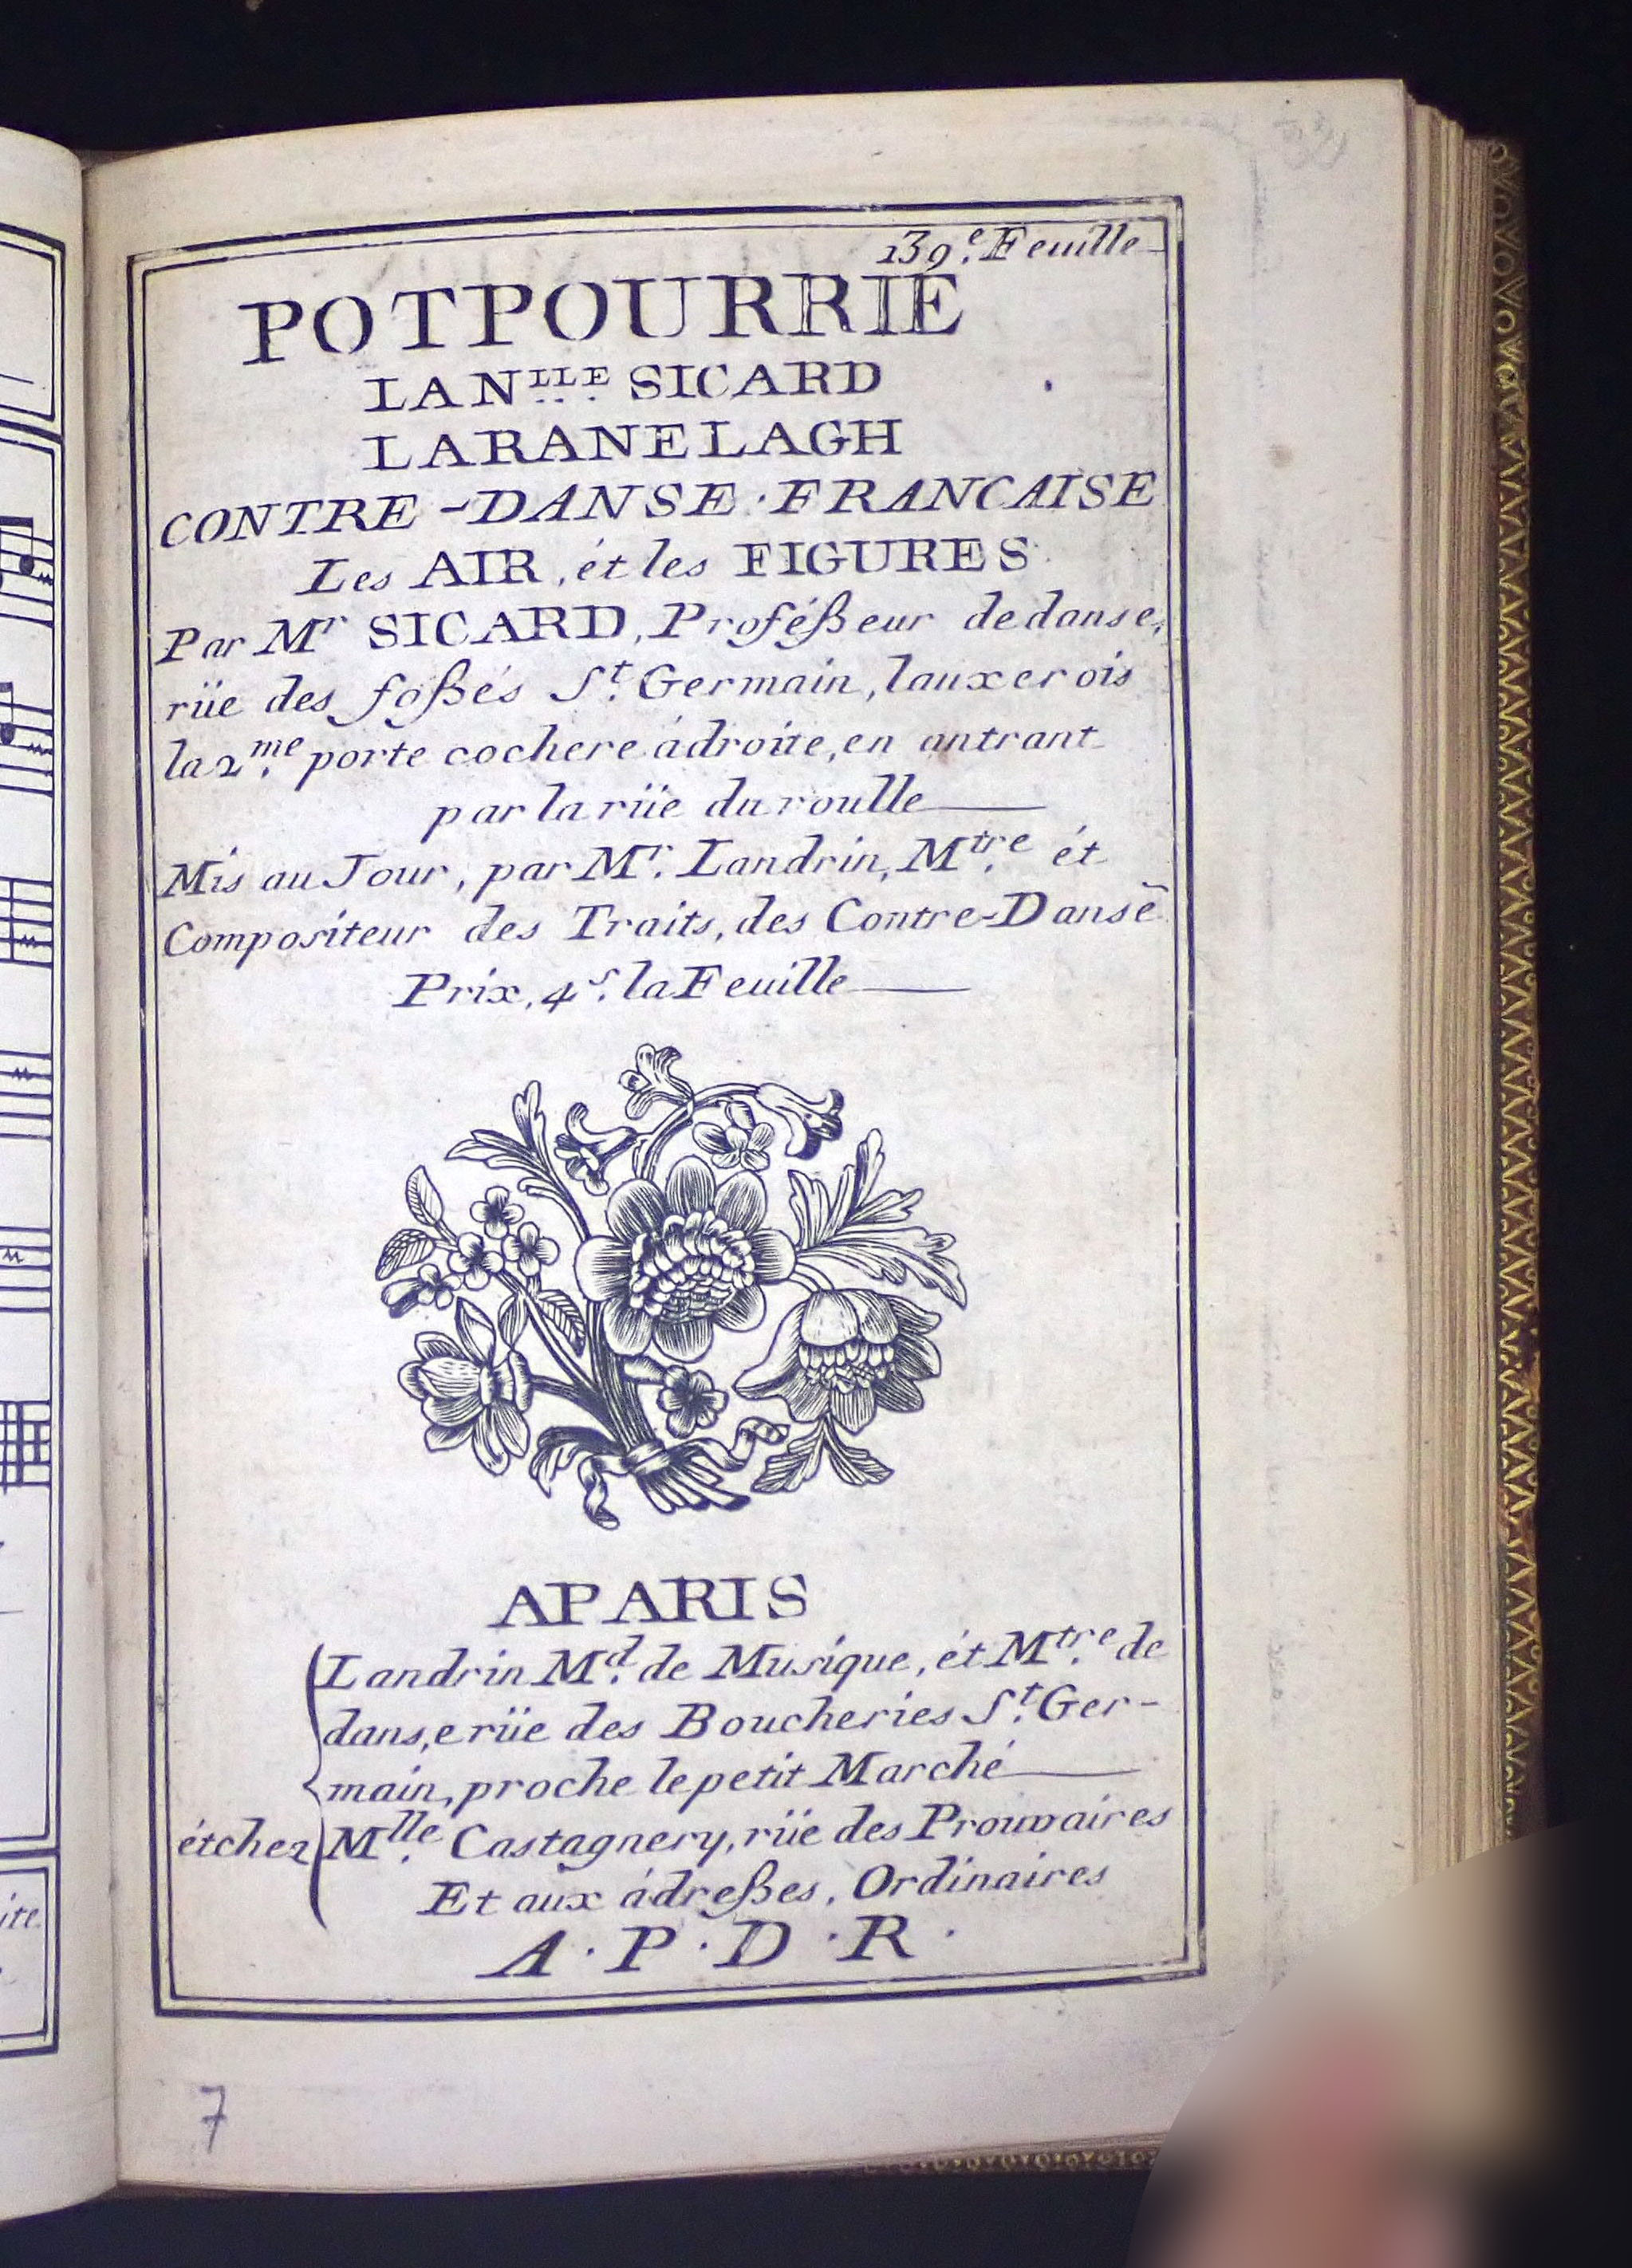 139.e Feuille
POTPOURRIE
LAN.LLE SICARD
LARANELAGH
CONTRE-DANSE · FRANCAISE
Les AIR, ét les FIGURES
Par Mr SICARD, Proféßeur de danse,
rüe des foßés St. Germain, lauxerois
la 2.me porte cochere à droite, en antrant
par la rüe du roulle
Mis au Jour, par Mr. Landrin, M.tre ét
Compositeur des Traits, des Contre-Danse
Prix, 4 s. la Feuille
APARIS
Landrin M.d de Musique, ét M.tre de
dans,e rüe des Boucheries St. Ger-
main, proche le petit Marché
étchez M.lle Castagnery, rüe des Prouvaires
Et aux ádreßes, Ordinaires
A · P · D · R ·
7
ite